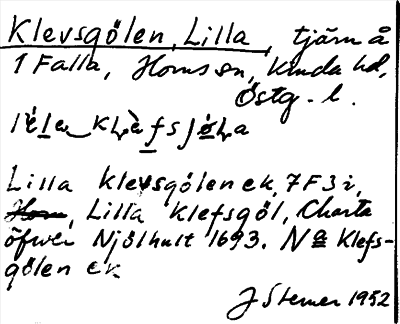 Klevsgölen, Lilla, tjärn å
1 Falla, Horns sn, Kinda hd,
Östg. l.
Lilla Klevsgölen ek, 7F3i,
Lilla Klefsgöl, Charta
öfwer Njölhult 1693. Na Klefs-
gölen ek
J Sterner 1952